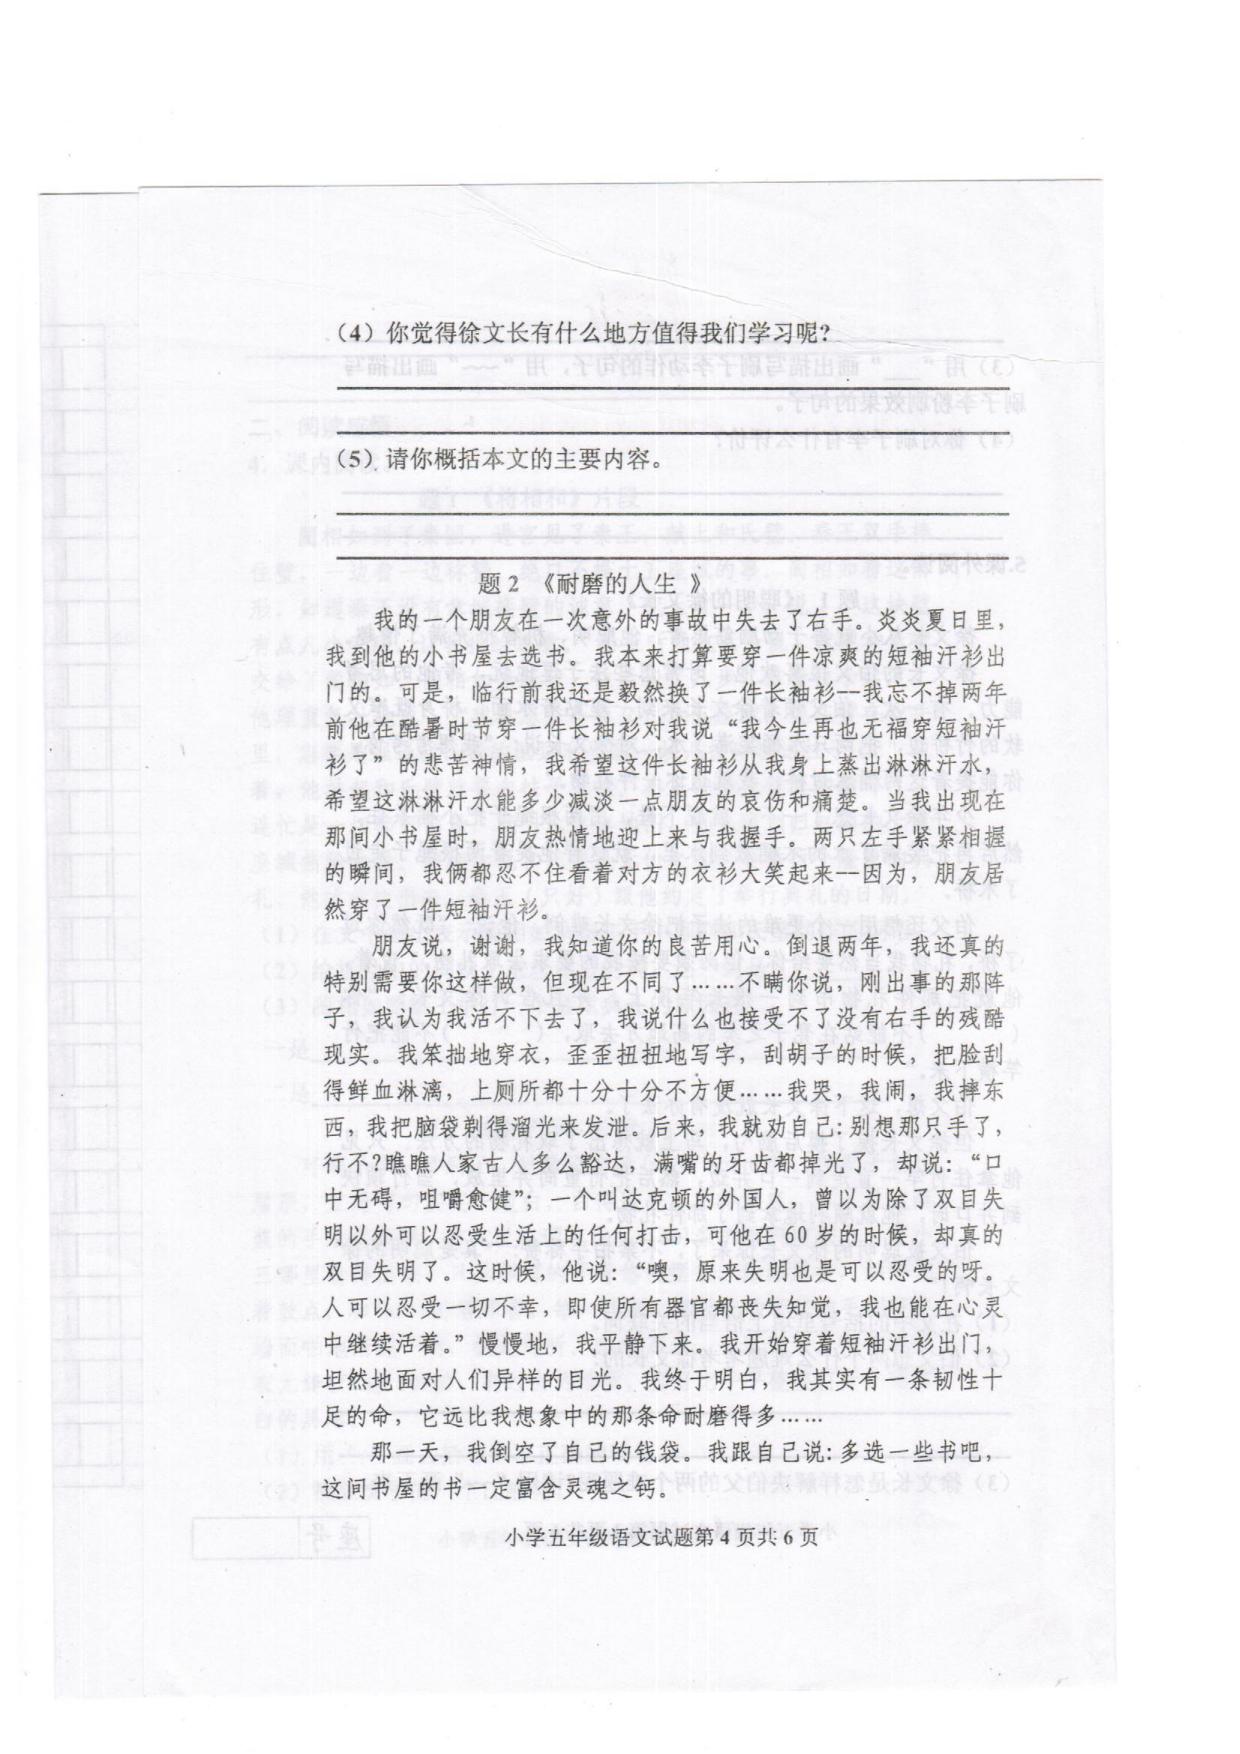 （4）你觉得徐文长有什么地方值得我们学习呢？
（5）请你概括本文的主要内容。
题 2 《耐磨的人生 》
我的一个朋友在一次意外的事故中失去了右手。炎炎夏日里，
我到他的小书屋去选书。我本来打算要穿一件凉爽的短袖汗衫出
门的。可是，临行前我还是毅然换了一件长袖衫--我忘不掉两年
前他在酷暑时节穿一件长袖衫对我说“我今生再也无福穿短袖汗
衫了”的悲苦神情，我希望这件长袖衫从我身上蒸出淋淋汗水，
希望这淋淋汗水能多少减淡一点朋友的哀伤和痛楚。当我出现在
那间小书屋时，朋友热情地迎上来与我握手。两只左手紧紧相握
的瞬间，我俩都忍不住看着对方的衣衫大笑起来--因为，朋友居
然穿了一件短袖汗衫。
朋友说，谢谢，我知道你的良苦用心。倒退两年，我还真的
特别需要你这样做，但现在不同了……不瞒你说，刚出事的那阵
子，我认为我活不下去了，我说什么也接受不了没有右手的残酷
现实。我笨拙地穿衣，歪歪扭扭地写字，刮胡子的时候，把脸刮
得鲜血淋漓，上厕所都十分十分不方便……我哭，我闹，我摔东
西，我把脑袋剃得溜光来发泄。后来，我就劝自己：别想那只手了，
行不？瞧瞧人家古人多么豁达，满嘴的牙齿都掉光了，却说：“口
中无碍，咀嚼愈健”；一个叫达克顿的外国人，曾以为除了双目失
明以外可以忍受生活上的任何打击，可他在 60 岁的时候，却真的
双目失明了。这时候，他说：“噢，原来失明也是可以忍受的呀。
人可以忍受一切不幸，即使所有器官都丧失知觉，我也能在心灵
中继续活着。”慢慢地，我平静下来。我开始穿着短袖汗衫出门，
坦然地面对人们异样的目光。我终于明白，我其实有一条韧性十
足的命，它远比我想象中的那条命耐磨得多……
那一天，我倒空了自己的钱袋。我跟自己说：多选一些书吧，
这间书屋的书一定富含灵魂之钙。
小学五年级语文试题第 4 页共 6 页